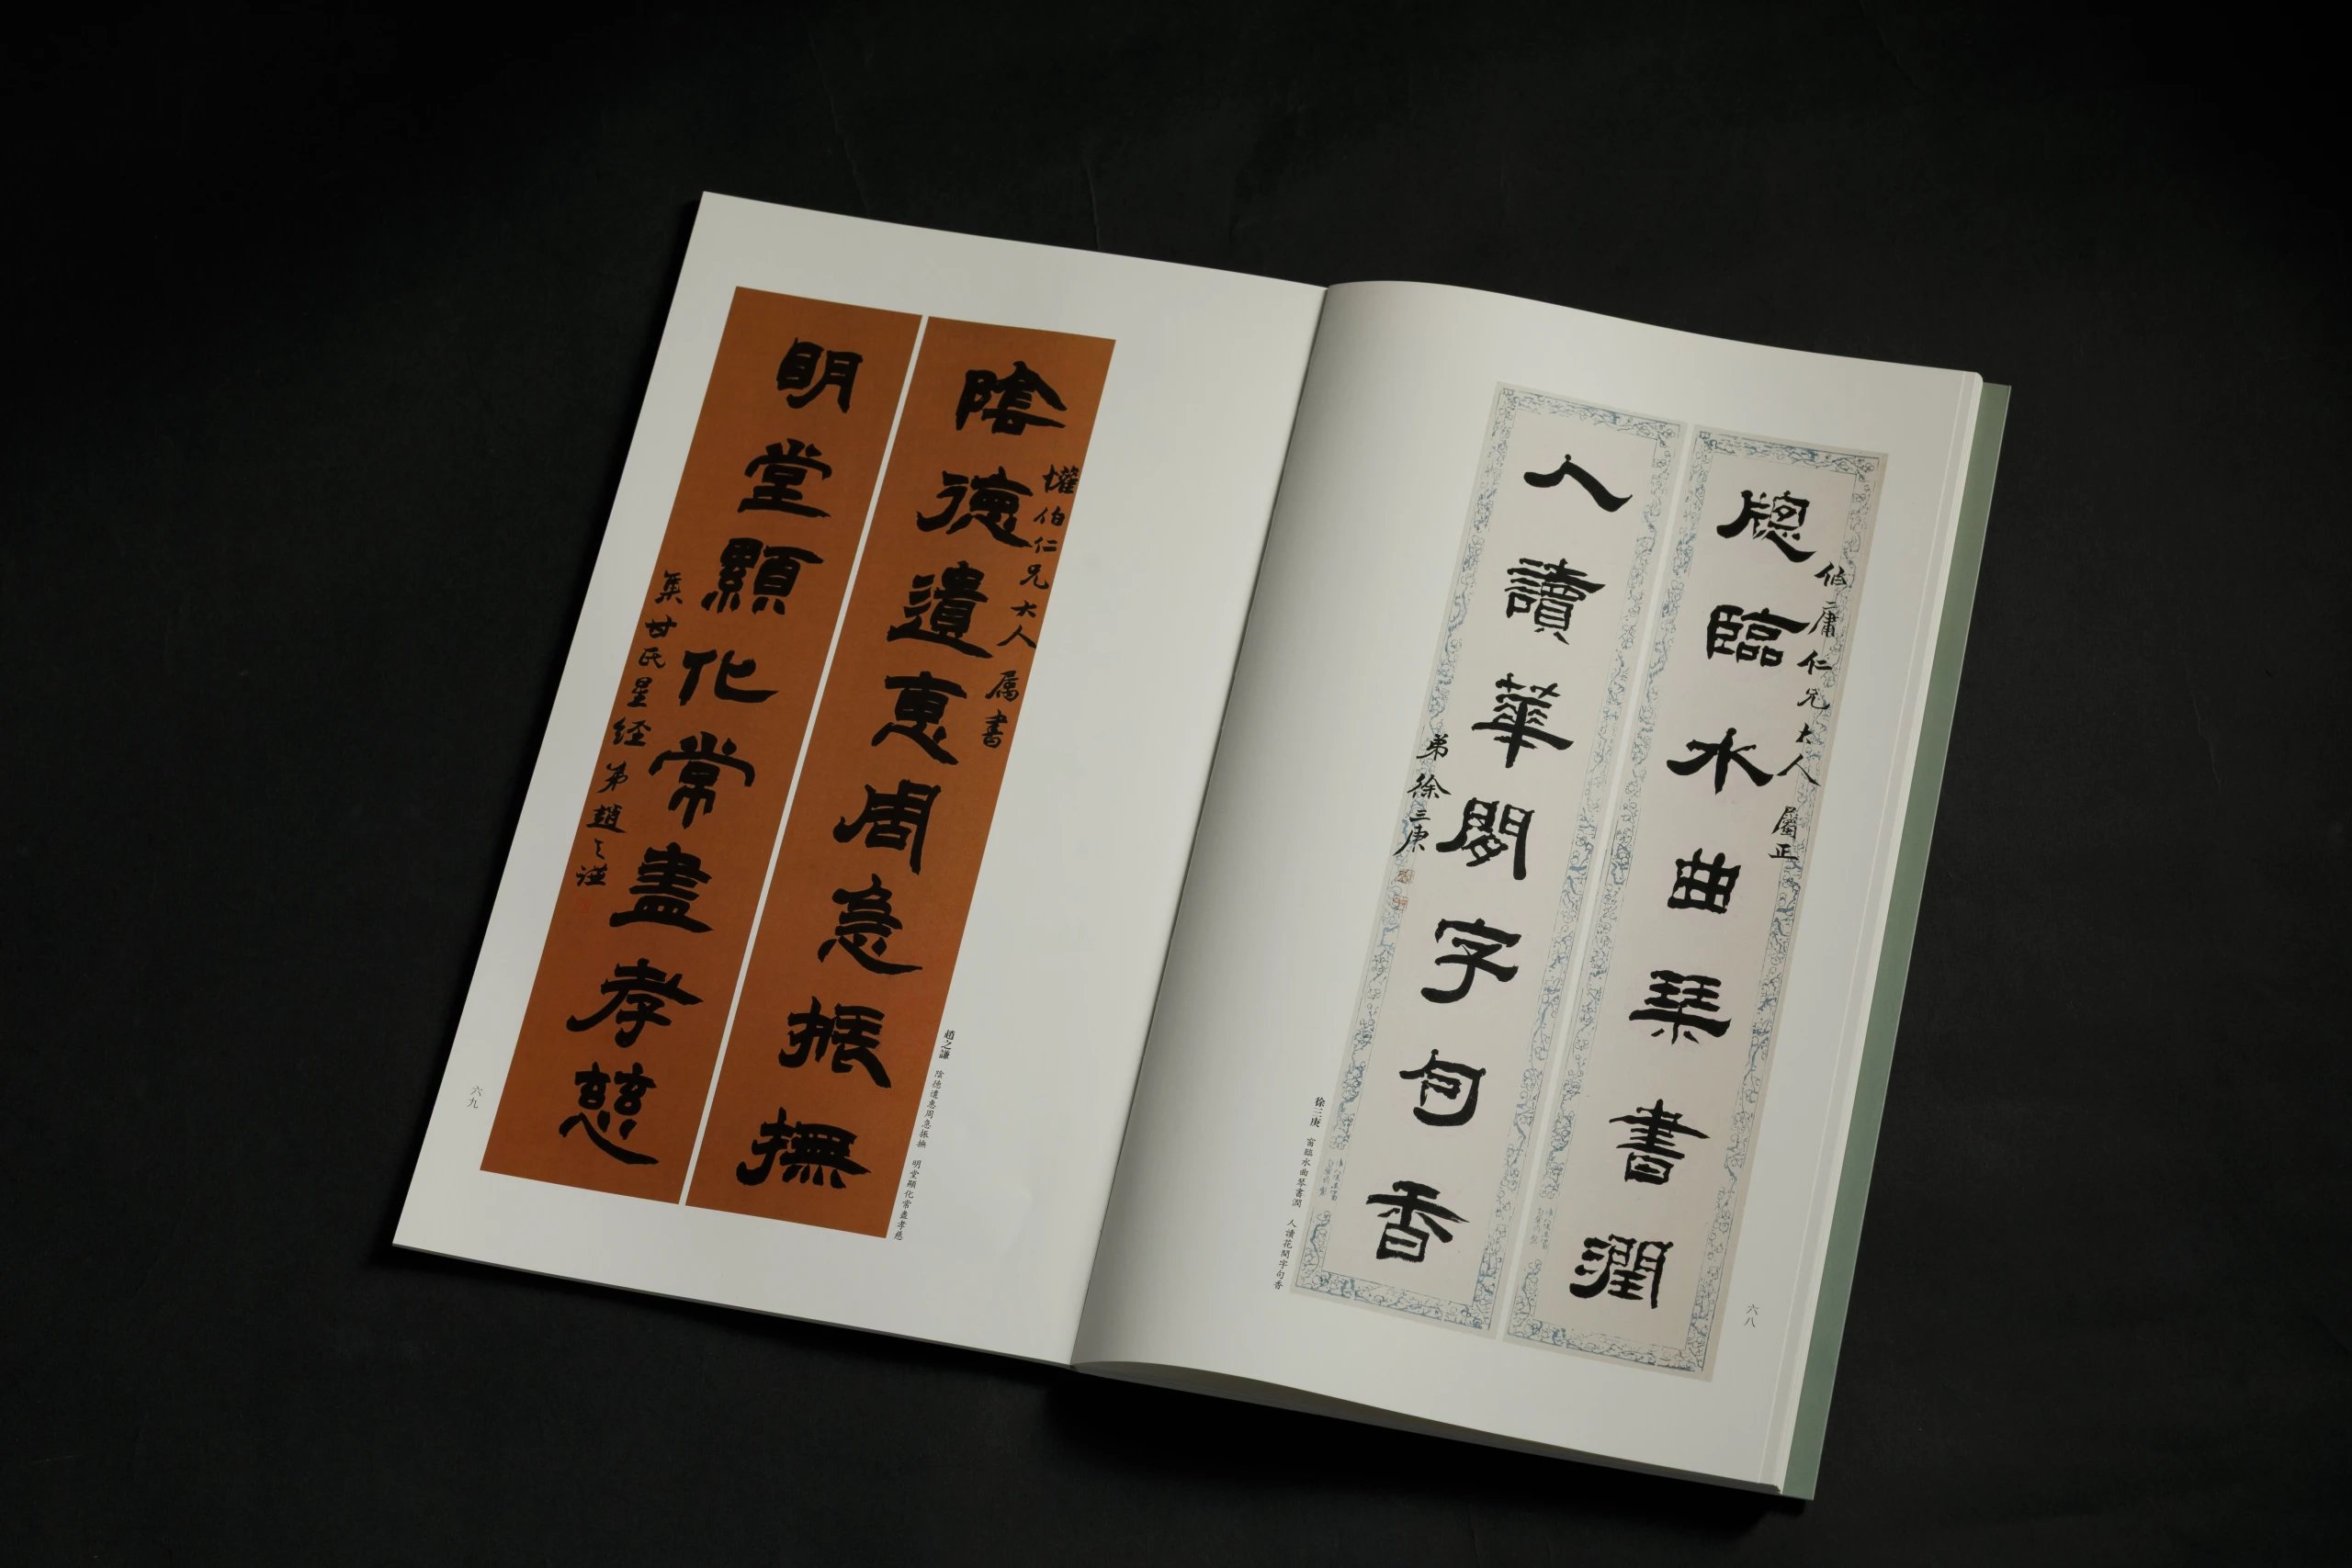 牕臨水曲琹書潤
伯庸仁兄大人屬正
人讀華閒字句香
弟徐三庚
徐三庚 窗臨水曲琴書潤 人讀花間字句香
六八
陰德遺惠周急振撫
伯仁兄大人属書
明堂顯化常盡孝慈
集甘氏星经弟趙之谦
趙之謙 陰德遺惠周急振撫 明堂顯化常盡孝慈
六九